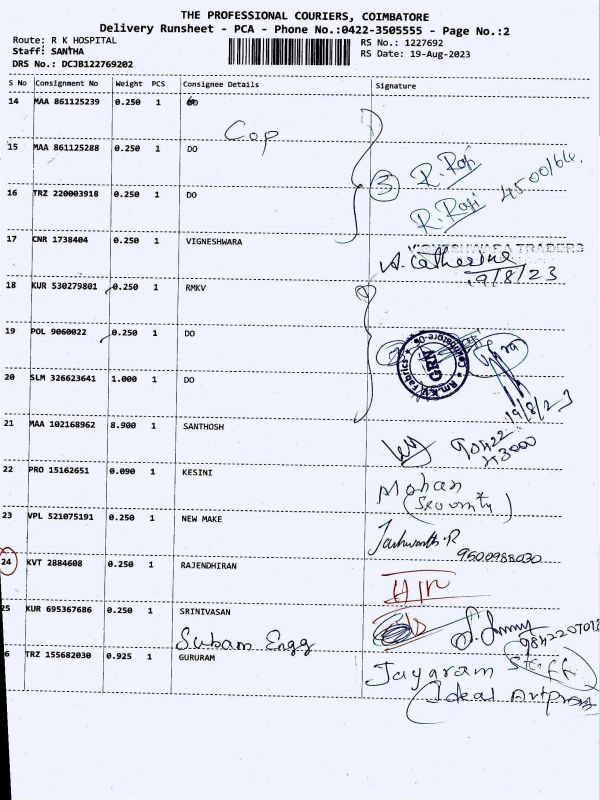 THE PROFESSIONAL COURIERS, COIMBATORE
Delivery Runsheet - PCA - Phone No.:0422-3505555 - Page No.:2
Route: R K HOSPITAL
RS No.: 1227692
Staff: SANTHA
RS Date: 19-Aug-2023
DRS No.: DCJB122769202
S No Consignment No Weight PCS Consignee Details Signature
14 MAA 861125239 0.250 1 DO
Cop
15 MAA 861125288 0.250 1 DO
3 R. Raji 4500/64.
16 TRZ 220003918 0.250 1 DO
R. Raji
17 CNR 1738404 0.250 1 VIGNESHWARA
VIGNESHWARA TRADERS
A. Catherine
19/8/23
18 KUR 530279801 0.250 1 RMKV
19 POL 9060022 0.250 1 DO
R.m.K.V Fabrics Coimbatore GRN
20 SLM 326623641 1.000 1 DO
19/8/23
21 MAA 102168962 8.900 1 SANTHOSH
90422
43000
22 PRO 15162651 0.090 1 KESINI
Mohan
(Security)
23 VPL 521075191 0.250 1 NEW MAKE
Jashwanth.R
9500988030
24 KVT 2884608 0.250 1 RAJENDHIRAN
25 KUR 695367686 0.250 1 SRINIVASAN
Subam Engg
9842207018
6 TRZ 155682030 0.925 1 GURURAM
Jayaram Staff
(Ideal Artpress